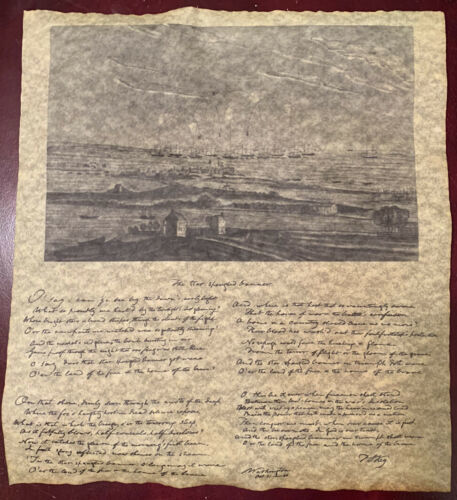 The Star-spangled banner
O! say, can you see by the dawn's early light
What so proudly we hail'd by the twilight's last gleaming
Whose bright stars & broad stripes, through the clouds of the fight,
O'er the ramparts we watch'd were so gallantly streaming?
And the rocket's red glare, the bombs bursting in air
Gave proof through the night that our flag was still there
O! say, does that star-spangled banner yet wave
O'er the land of the free & the home of the brave?
On that shore, dimly seen through the mists of the deep
Where the foe's haughty host in dread silence reposes
What is that which the breeze, o'er the towering steep
As it fitfully blows, half conceals, half discloses?
Now it catches the gleam of the morning's first beam
In full glory reflected now shines on the stream
'Tis the star-spangled banner O long may it wave
O'er the land of the free & the home of the brave
And where is the host that so vauntingly swore
That the havoc of war & the battle's confusion
A home & a Country should leave us no more?
Their blood has wash'd out their foul footsteps' pollution
No refuge could save the hireling & slave
From the terror of flight or the gloom of the grave
And the star-spangled banner in triumph doth wave
O'er the land of the free & the home of the brave
O! thus be it ever when freemen shall stand
Between their lov'd home & the war's desolation
Then conquer we must, when our cause it is just
And this be our motto
And the star-spangled banner in triumph shall wave
O'er the land of the free & the home of the brave
F S Key
Washington